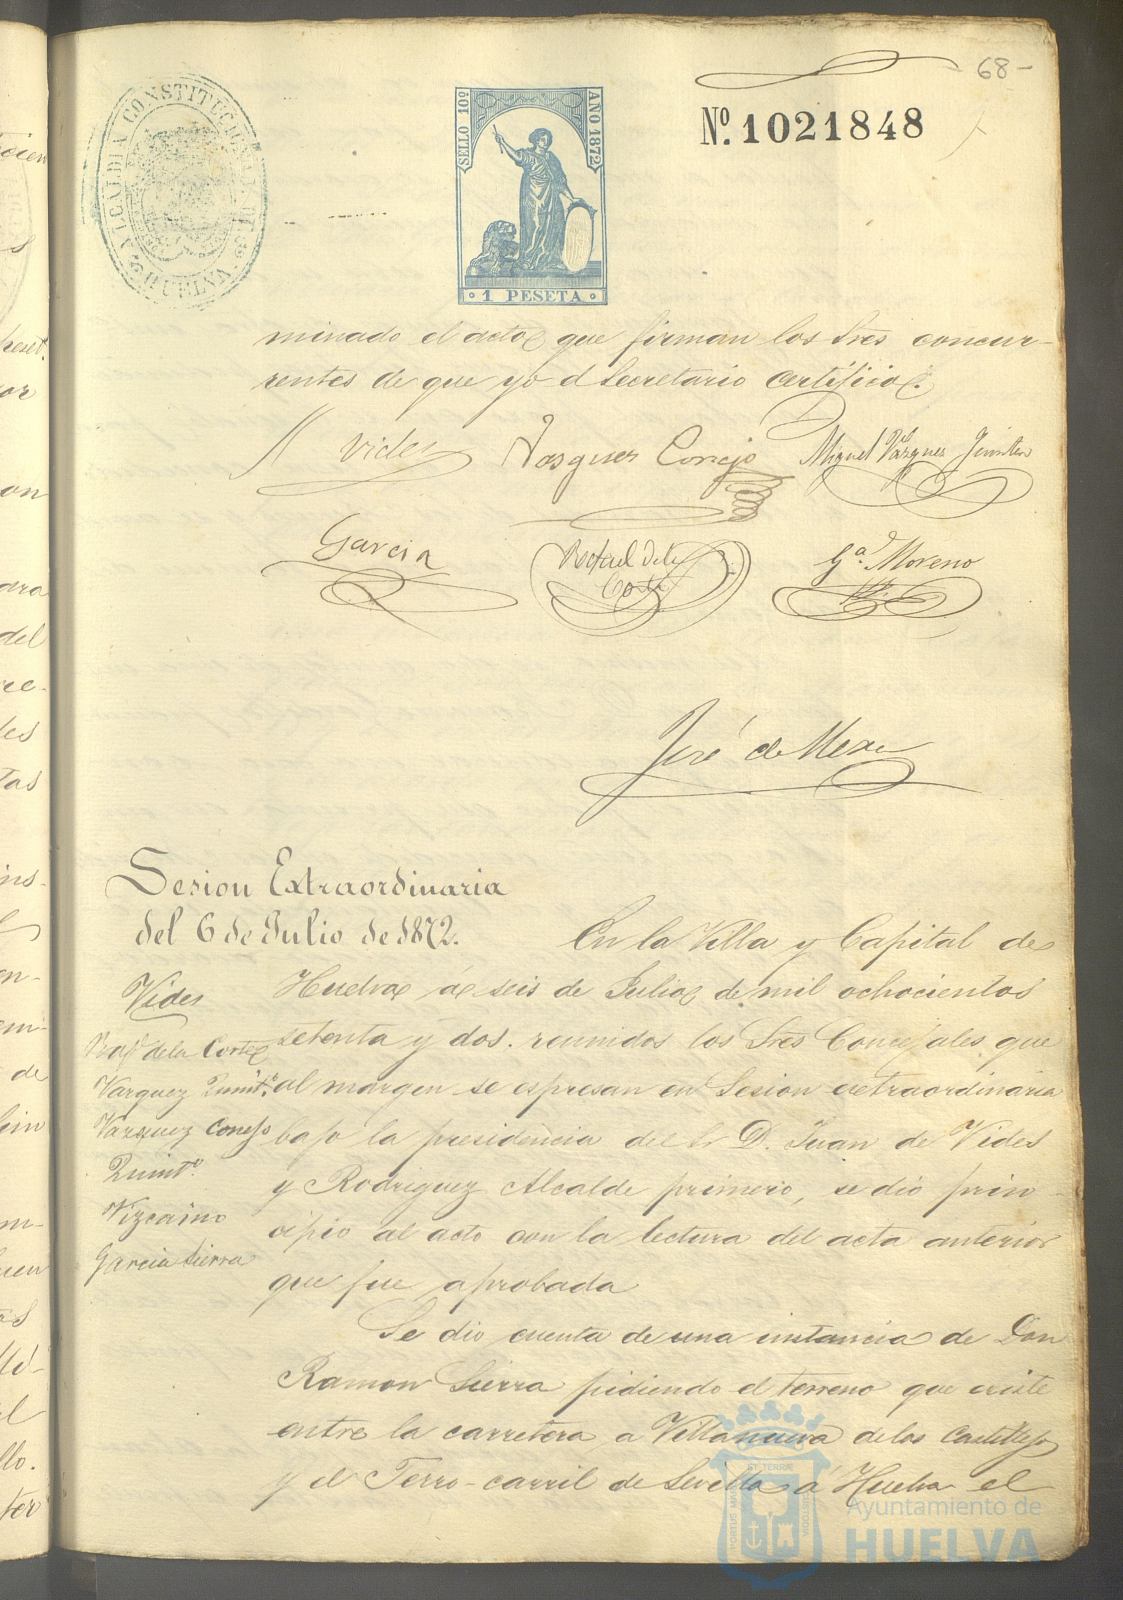 68-
ALCALDIA CONSTITUCIONAL DE HUELVA
SELLO 10º AÑO 1872
1 PESETA
Nº. 1021848
minado el acto que firman los Sres concur-
rentes de que yo el Secretario certifico.
Vides Vasquez Conejo Miguel Vázquez
Garcia Rafael de la Corte Gª. Moreno
José de Mesa
Sesion Extraordinaria
del 6 de Julio de 1872.
Vides
Raf. de la Corte
Vazquez Quintº.
Vazquez Conejo
Quintº.
Vizcaino
Garcia Sierra
En la Villa y Capital de
Huelva á seis de Julio de mil ochocientos
setenta y dos. reunidos los Sres Concejales que
al margen se espresan en Sesion extraordinaria
bajo la presidencia del Sr D. Juan de Vides
y Rodriguez Alcalde primero, se dio prin-
cipio al acto con la lectura del acta anterior
que fue aprobada
Se dio cuenta de una instancia de Don
Ramon Sierra pidiendo el terreno que existe
entre la carretera a Villanueva de los Castillejos
y el Ferro-carril de Sevilla á Huelva el
Ayuntamiento de
HUELVA